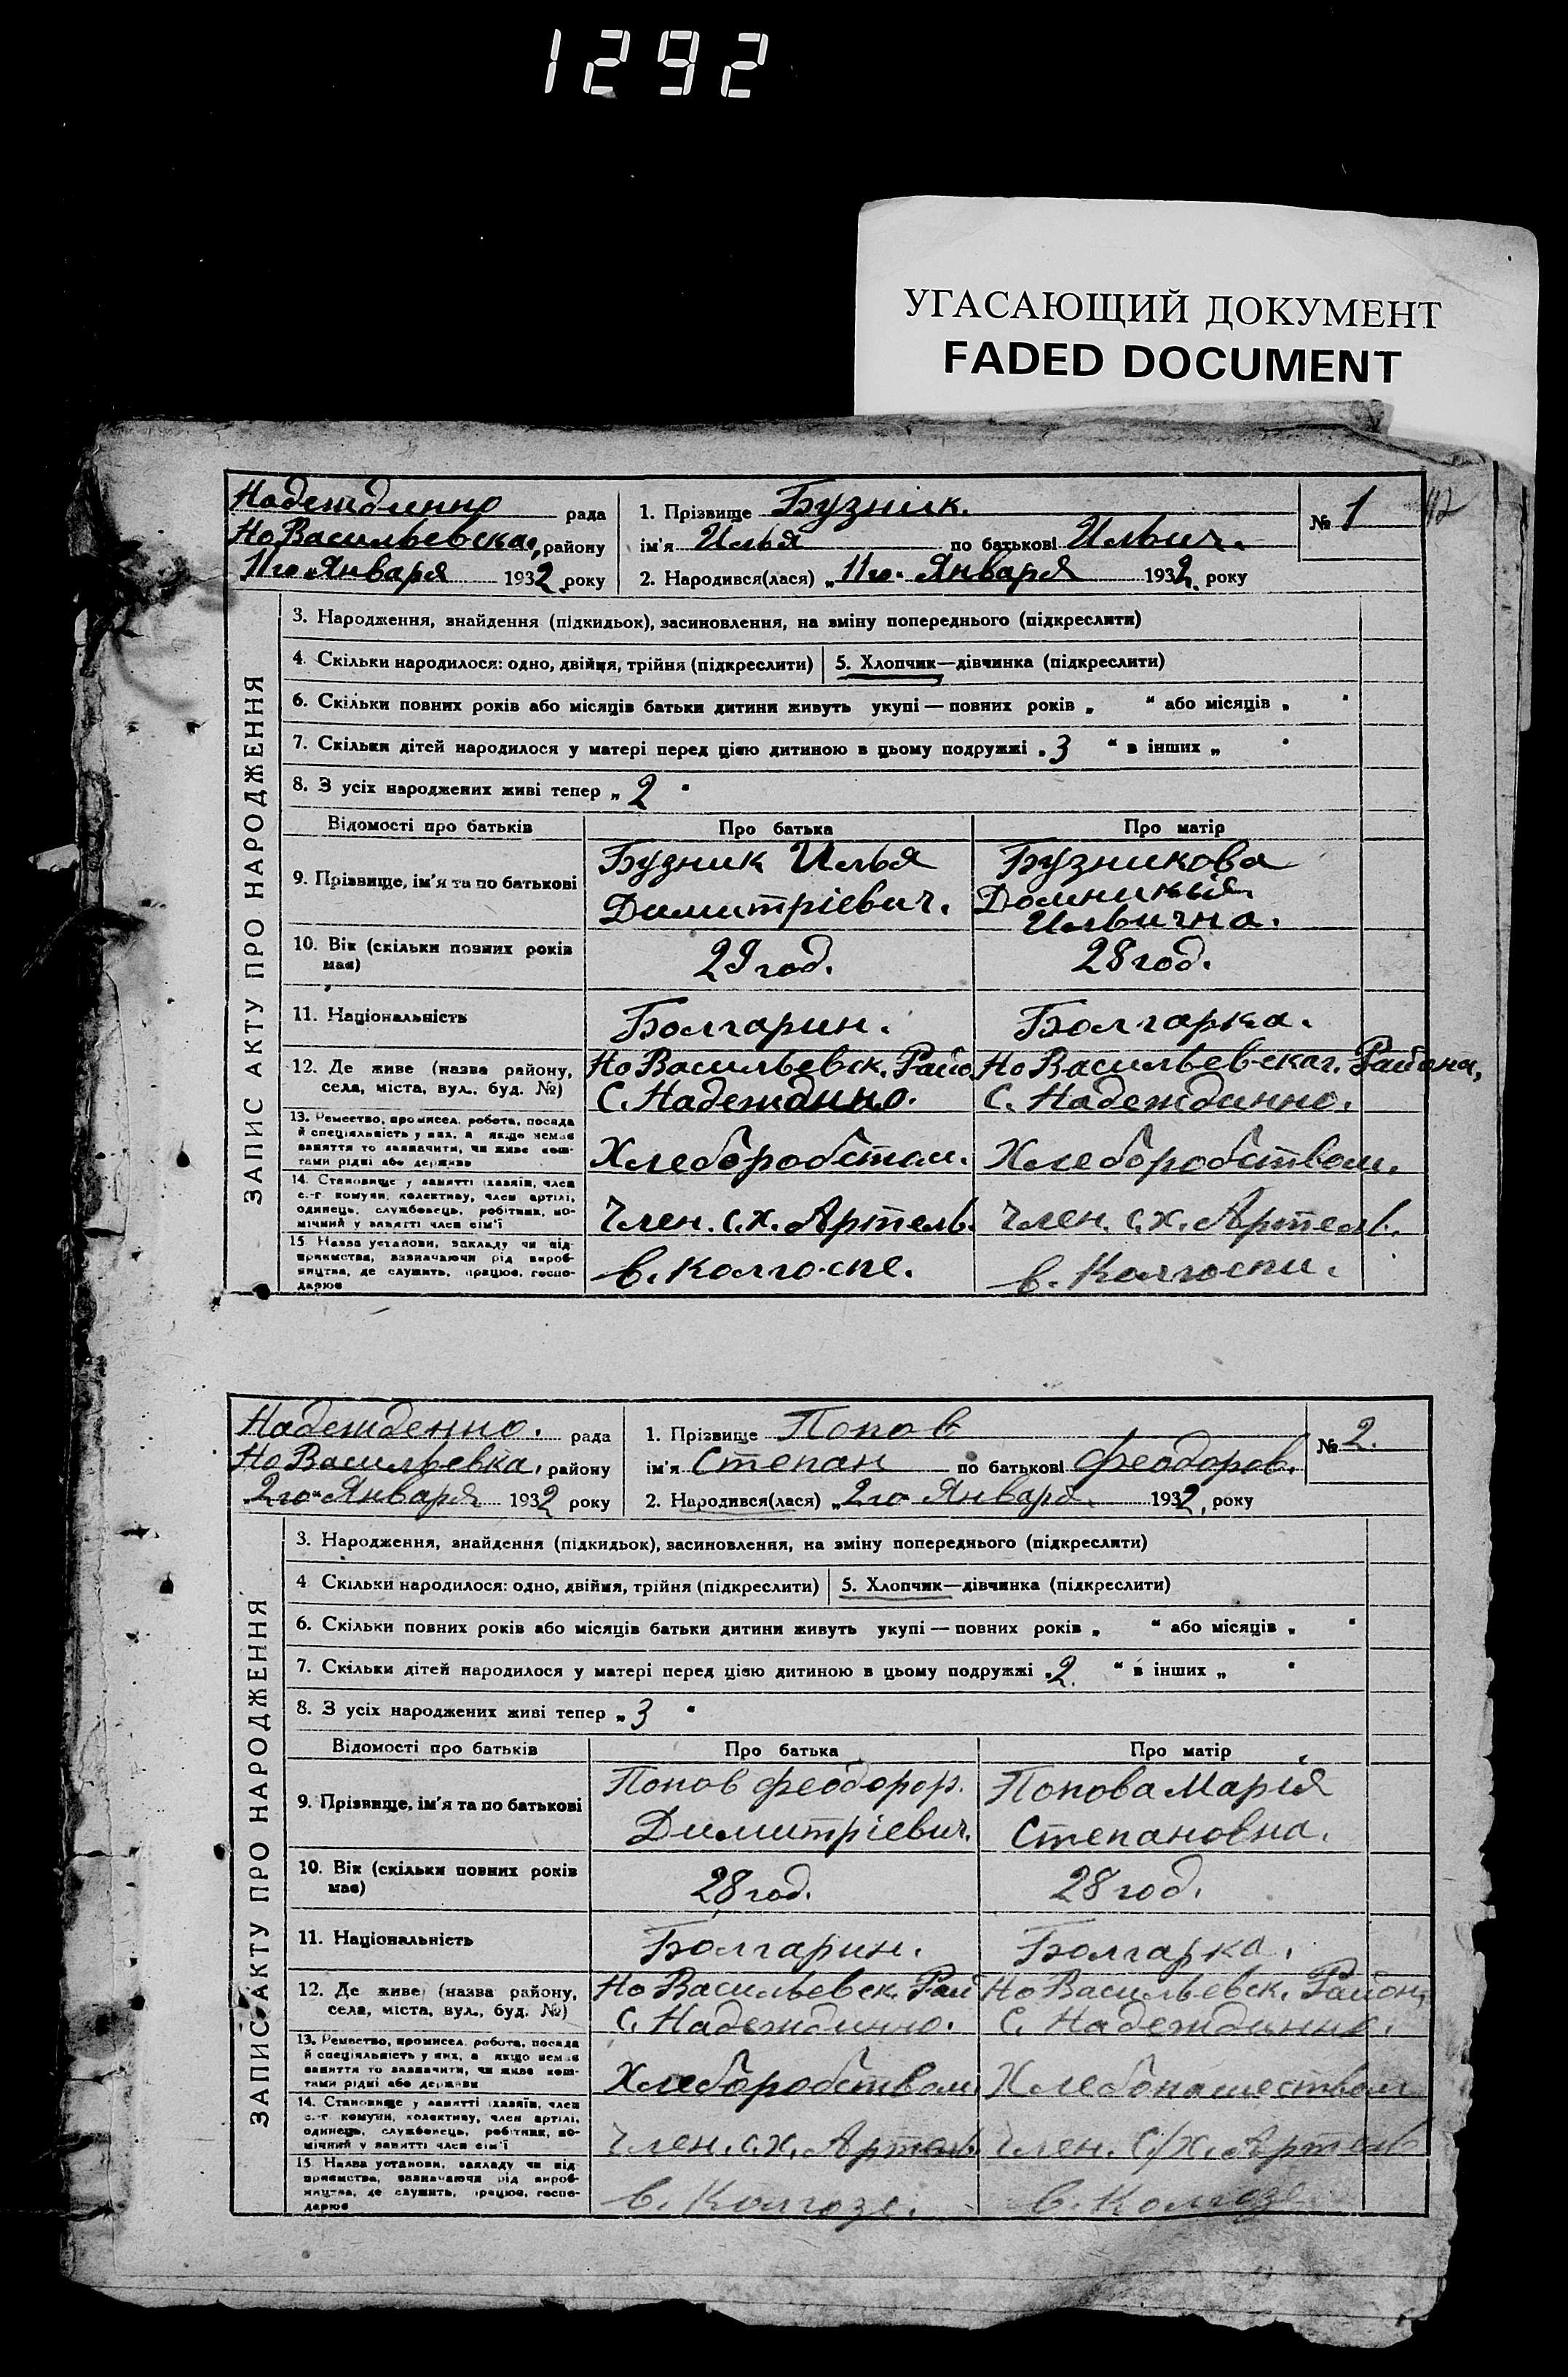 1292
УГАСАЮЩИЙ ДОКУМЕНТ
FADED DOCUMENT
42
ЗАПИС АКТУ ПРО НАРОДЖЕННЯ
Надеждинно рада
НоВасильевска, району
11го Января 1932 року
1. Прізвище Бузник.
ім'я Илья по батькові Ильич.
2. Народився(лася) „11го" Января 1932 року
№ 1
3. Народження, знайдення (підкидьок), засиновлення, на зміну попереднього (підкреслити)
4. Скільки народилося: одно, двійня, трійня (підкреслити) 5. Хлопчик—дівчинка (підкреслити)
6. Скільки повних років або місяців батьки дитини живуть укупі — повних років „ " або місяців „ "
7. Скільки дітей народилося у матері перед цією дитиною в цьому подружжі „3 " в інших „ "
8. З усіх народжених живі тепер „ 2 "
Відомості про батьків Про батька Про матір
9. Прізвище, ім'я та по батькові
Бузник Илья
Димитріевич.
Бузникова
Домникия
Ильична.
10. Вік (скільки повних років має)
29 год. 28 год.
11. Національність Болгарин. Болгарка.
12. Де живе (назва району,
села, міста, вул., буд. №)
НоВасильевск. Райо
С. Надеждинно.
НоВасильевскаг. Района,
С. Надеждинно.
13. Ремество, промисел, робота, посада
й спеціяльність у них, а якщо немає
заняття то зазначити, чи живе кош-
тами рідні або держави
Хлеборобстом. Хлеборобством.
14. Становище у занятті (хазяїн, член
с.-г. комуни, колективу, член артілі,
одинець, службовець, робітник, по-
мічний у занятті член сім'ї
Член. с.х. Артель. Член. с.х. Артель.
15 Назва установи, закладу чи під-
приємства, зазначаючи рід вироб-
ництва, де служить, працює, госпо-
дарює
в. Колгоспе. в. Колгоспи.
ЗАПИС АКТУ ПРО НАРОДЖЕННЯ
Надежденно. рада
НоВасильевка, району
„2го" Января 1932 року
1. Прізвище Попов
ім'я Степан по батькові Феодоров.
2. Народився(лася) „2го" Января. 1932, року
№ 2.
3. Народження, знайдення (підкидьок), засиновлення, на зміну попереднього (підкреслити)
4 Скільки народилося: одно, двійня, трійня (підкреслити) 5. Хлопчик—дівчинка (підкреслити)
6. Скільки повних років або місяців батьки дитини живуть укупі — повних років „ " або місяців „ "
7. Скільки дітей народилося у матері перед цією дитиною в цьому подружжі „2. " в інших „ "
8. З усіх народжених живі тепер „ 3 "
Відомості про батьків Про батька Про матір
9. Прізвище, ім'я та по батькові
Попов Феодорор.
Димитріевич.
Попова Марія
Степановна.
10. Вік (скільки повних років має)
28 год. 28 год.
11. Національність Болгарин. Болгарка.
12. Де живе (назва району,
села, міста, вул., буд. №)
НоВасильевск. Рай
С. Надеждинно.
НоВасильевск. Район,
С. Надеждинно.
13. Ремество, промисел, робота, посада
й спеціяльність у них, а якщо немає
заняття то зазначити, чи живе кош-
тами рідні або держави
Хлеборобством Хлебопашеством
14. Становище у занятті (хазяїн, член
с.-г. комуни, колективу, член артілі,
одинець, службовець, робітник, по-
мічний у занятті член сім'ї
Член. с.х. Артель. Член. С/х. Артель
15 Назва установи, закладу чи під-
приємства, зазначаючи рід вироб-
ництва, де служить, працює, госпо-
дарює
в. Колгозе. в. Колгозе